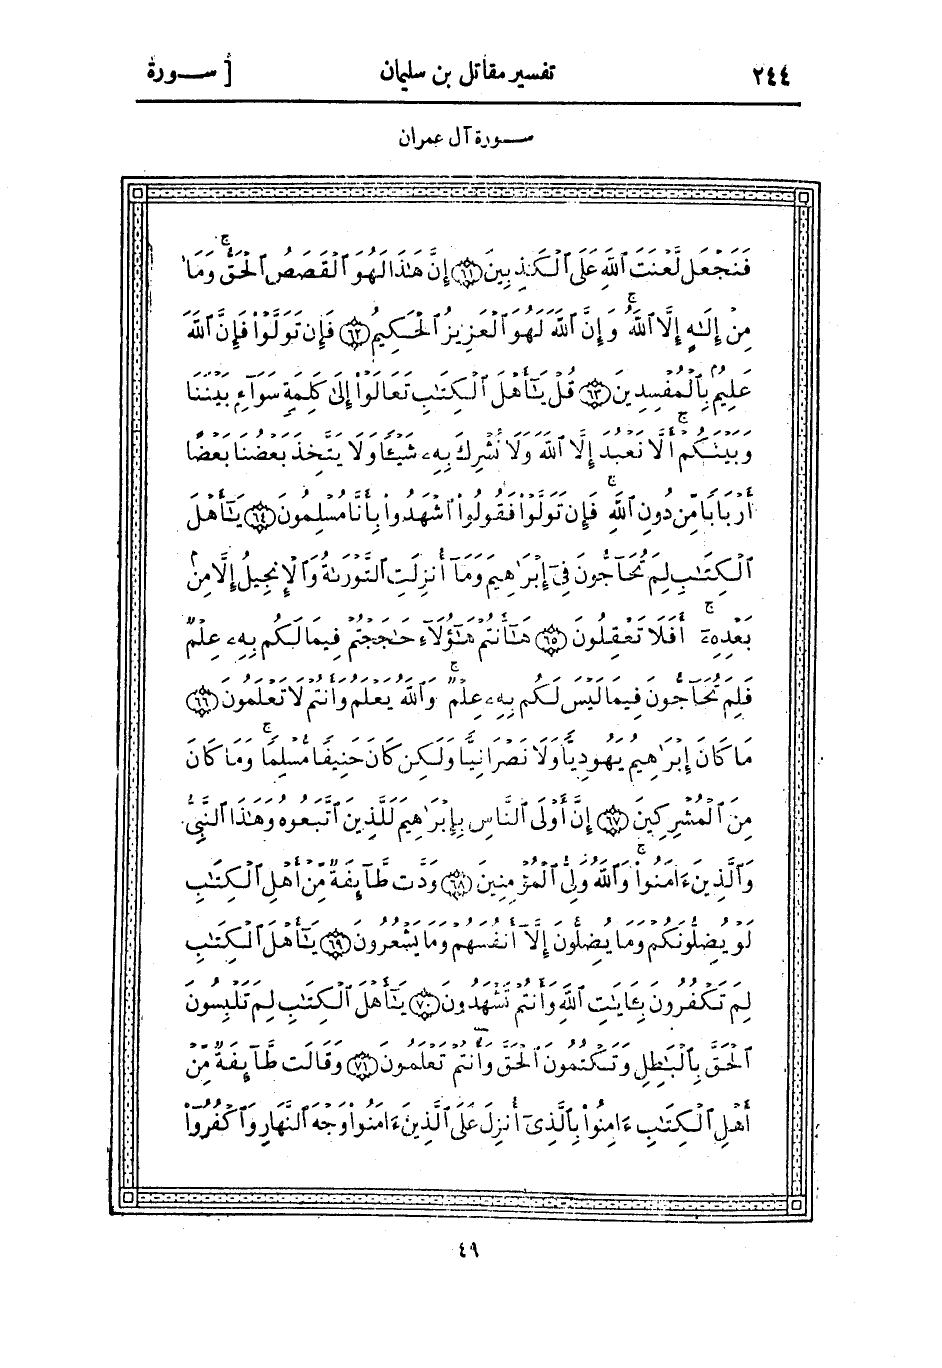 ٢٤٤ تفسير مقاتل بن سليمان [ سورة
سورة آل عمران
فَنَجْعَل لَّعْنَتَ ٱللَّهِ عَلَى ٱلْكَٰذِبِينَ ﴿٦١﴾ إِنَّ هَٰذَا لَهُوَ ٱلْقَصَصُ ٱلْحَقُّ ۚ وَمَا
مِنْ إِلَٰهٍ إِلَّا ٱللَّهُ ۚ وَإِنَّ ٱللَّهَ لَهُوَ ٱلْعَزِيزُ ٱلْحَكِيمُ ﴿٦٢﴾ فَإِن تَوَلَّوْا۟ فَإِنَّ ٱللَّهَ
عَلِيمٌۢ بِٱلْمُفْسِدِينَ ﴿٦٣﴾ قُلْ يَٰٓأَهْلَ ٱلْكِتَٰبِ تَعَالَوْا۟ إِلَىٰ كَلِمَةٍ سَوَآءٍۭ بَيْنَنَا
وَبَيْنَكُمْ أَلَّا نَعْبُدَ إِلَّا ٱللَّهَ وَلَا نُشْرِكَ بِهِۦ شَيْـًٔا وَلَا يَتَّخِذَ بَعْضُنَا بَعْضًا
أَرْبَابًا مِّن دُونِ ٱللَّهِ ۚ فَإِن تَوَلَّوْا۟ فَقُولُوا۟ ٱشْهَدُوا۟ بِأَنَّا مُسْلِمُونَ ﴿٦٤﴾ يَٰٓأَهْلَ
ٱلْكِتَٰبِ لِمَ تُحَآجُّونَ فِىٓ إِبْرَٰهِيمَ وَمَآ أُنزِلَتِ ٱلتَّوْرَىٰةُ وَٱلْإِنجِيلُ إِلَّا مِنۢ
بَعْدِهِۦٓ ۚ أَفَلَا تَعْقِلُونَ ﴿٦٥﴾ هَٰٓأَنتُمْ هَٰٓؤُلَآءِ حَٰجَجْتُمْ فِيمَا لَكُم بِهِۦ عِلْمٌ
فَلِمَ تُحَآجُّونَ فِيمَا لَيْسَ لَكُم بِهِۦ عِلْمٌ ۚ وَٱللَّهُ يَعْلَمُ وَأَنتُمْ لَا تَعْلَمُونَ ﴿٦٦﴾
مَا كَانَ إِبْرَٰهِيمُ يَهُودِيًّا وَلَا نَصْرَانِيًّا وَلَٰكِن كَانَ حَنِيفًا مُّسْلِمًا ۚ وَمَا كَانَ
مِنَ ٱلْمُشْرِكِينَ ﴿٦٧﴾ إِنَّ أَوْلَى ٱلنَّاسِ بِإِبْرَٰهِيمَ لَلَّذِينَ ٱتَّبَعُوهُ وَهَٰذَا ٱلنَّبِىُّ
وَٱلَّذِينَ ءَامَنُوا۟ ۚ وَٱللَّهُ وَلِىُّ ٱلْمُؤْمِنِينَ ﴿٦٨﴾ وَدَّت طَّآئِفَةٌ مِّنْ أَهْلِ ٱلْكِتَٰبِ
لَوْ يُضِلُّونَكُمْ وَمَا يُضِلُّونَ إِلَّآ أَنفُسَهُمْ وَمَا يَشْعُرُونَ ﴿٦٩﴾ يَٰٓأَهْلَ ٱلْكِتَٰبِ
لِمَ تَكْفُرُونَ بِـَٔايَٰتِ ٱللَّهِ وَأَنتُمْ تَشْهَدُونَ ﴿٧٠﴾ يَٰٓأَهْلَ ٱلْكِتَٰبِ لِمَ تَلْبِسُونَ
ٱلْحَقَّ بِٱلْبَٰطِلِ وَتَكْتُمُونَ ٱلْحَقَّ وَأَنتُمْ تَعْلَمُونَ ﴿٧١﴾ وَقَالَت طَّآئِفَةٌ مِّنْ
أَهْلِ ٱلْكِتَٰبِ ءَامِنُوا۟ بِٱلَّذِىٓ أُنزِلَ عَلَى ٱلَّذِينَ ءَامَنُوا۟ وَجْهَ ٱلنَّهَارِ وَٱكْفُرُوٓا۟
٤٩